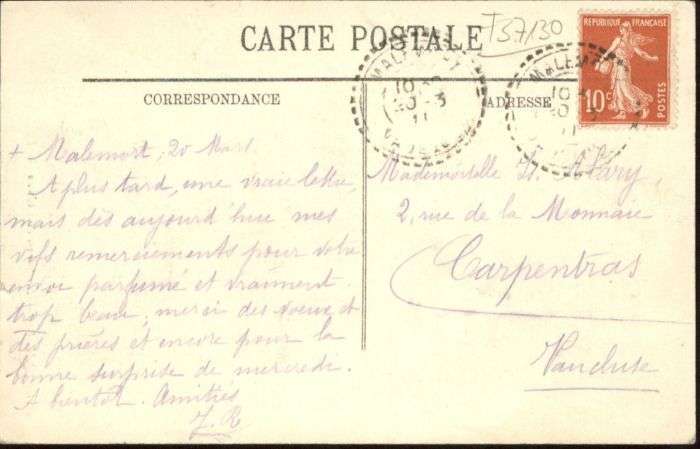 CARTE POSTALE
T37/130
CORRESPONDANCE
ADRESSE
RÉPUBLIQUE FRANÇAISE
10c
POSTES
MALEMORT
10
20 - 3
11
VAUCLUSE
MALEMORT
10
20 - 3
11
+ Malemort, 20 Mars
A plus tard, une vraie lettre,
mais dès aujourd'hui mes
vifs remerciements pour votre
envoi parfumé et vraiment
trop beau, merci des voeux et
des prières et encore pour la
bonne surprise de mercredi.
A bientôt. Amitiés
J. R
Mademoiselle
2, rue de la Monnaie
Carpentras
Vaucluse